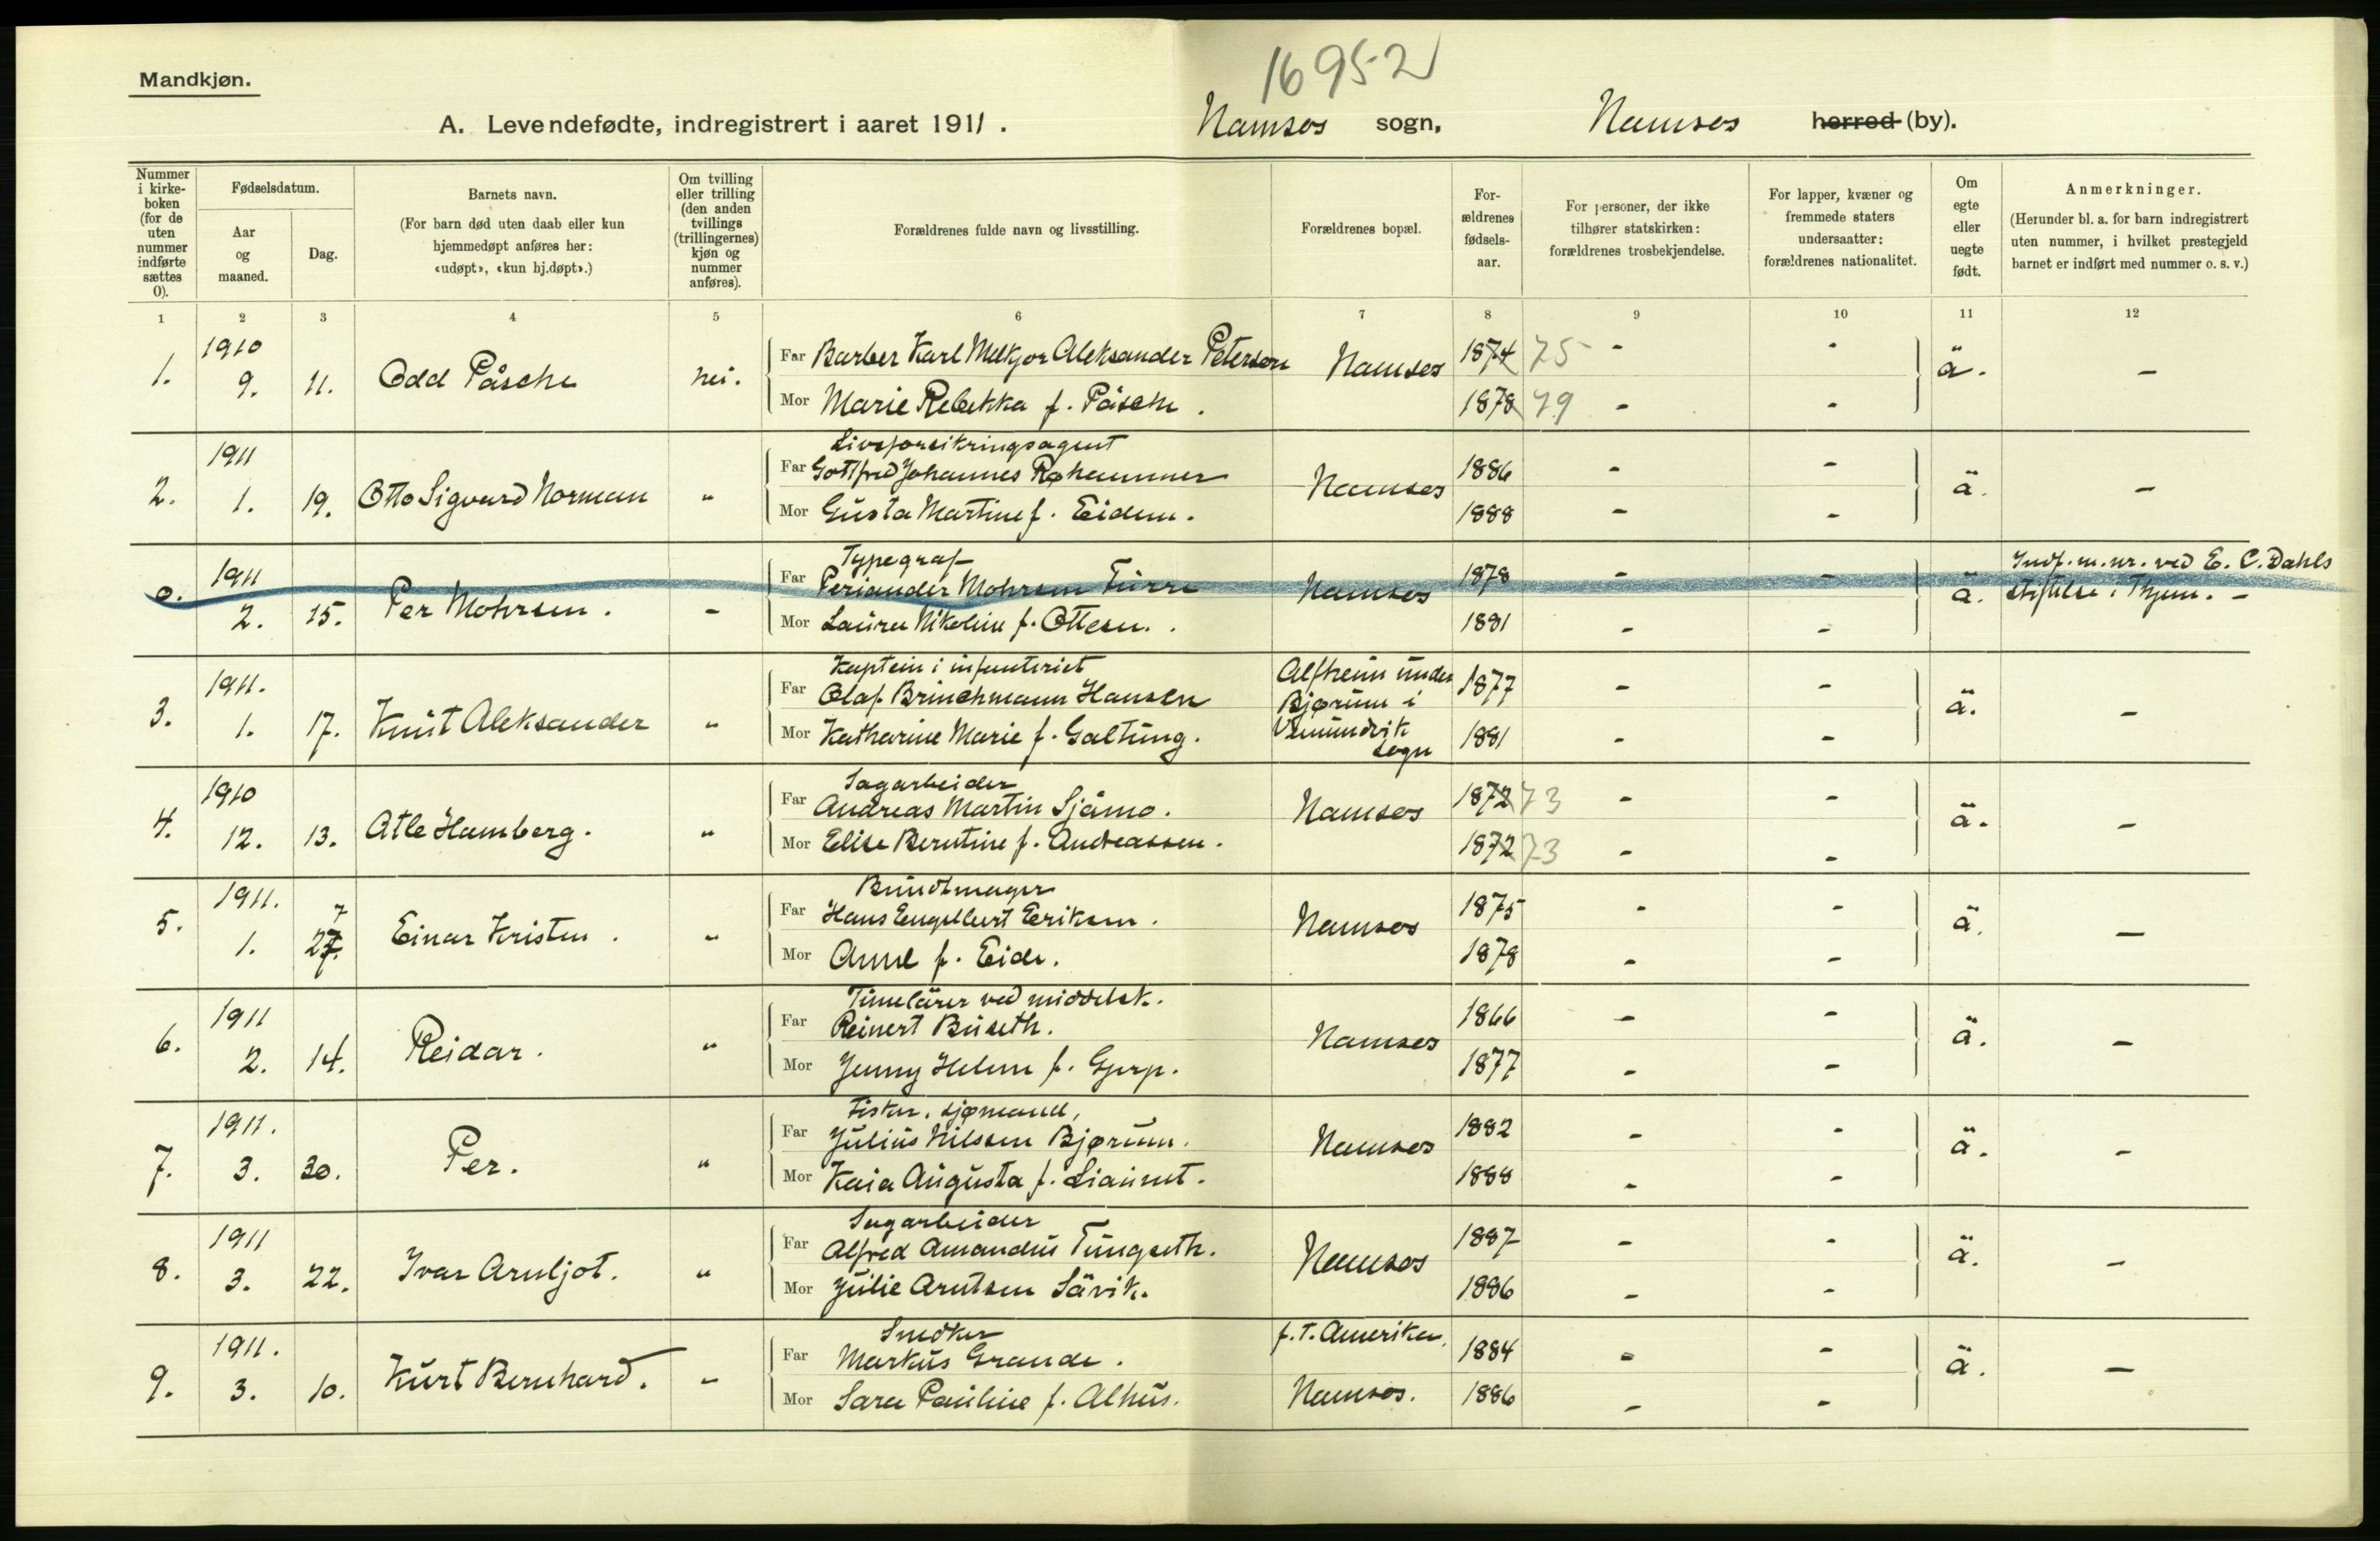 16952
Mandkjøn.
A. Levendefødte, indregistrert i aaret 1911. Namsos sogn, Namsos herred (by).
Nummer i kirke-boken (for de uten nummer indførte sættes 0).
Fødselsdatum.
Aar og maaned.
Dag.
Barnets navn.
(For barn død uten daab eller kun hjemmedøpt anføres her: «udøpt», «kun hj.døpt».)
Om tvilling eller trilling (den anden tvillings (trillingernes) kjøn og nummer anføres).
Forældrenes fulde navn og livsstilling.
Forældrenes bopæl.
For-ældrenes fødsels-aar.
For personer, der ikke tilhører statskirken: forældrenes trosbekjendelse.
For lapper, kvæner og fremmede staters undersaatter: forældrenes nationalitet.
Om egte eller uegte født.
Anmerkninger.
(Herunder bl. a. for barn indregistrert uten nummer, i hvilket prestegjeld barnet er indført med nummer o. s. v.)
1 2 3 4 5 6 7 8 9 10 11 12
1. 1910 9. 11. Odd Påsche nei. Far Barber Karl Melkjor Aleksander Peterson Namsos 1874 75 - - ä. -
Mor Marie Rebekka f. Påsche. 1878 79 - -
2. 1911 1. 19. Otto Sigvard Norman " Livsforsikringsagent
Far Gottfred Johannes Røhammer Namsos 1886 - - ä. -
Mor Gusta Martine f. Eidem. 1888 - -
0. 1911 2. 15. Per Mohrsen. - Typegraf
Far Periander Mohrsen Fürre Namsos 1878 - - ä. Indf. m. nr. ved E. C. Dahls
stiftelse i Thjem. -
Mor Laura Nikoline f. Ottesen. 1881 - -
3. 1911. 1. 17. Knut Aleksander " Kaptein i infanteriet
Far Olaf Brinchmann Hansen Alfheim under Bjørum i 1877 - - ä. -
Mor Katharine Marie f. Galtung. Vemundvik sogn 1881 - -
4. 1910 12. 13. Atle Hamberg. " Sagarbeider
Far Andreas Martin Sjåmo. Namsos 1872 73 - - ä. -
Mor Elise Berntine f. Andreassen. 1872 73 - -
5. 1911. 1. 27. 7 Einar Kristen. " Bundtmager
Far Hans Engelbert Eriksen. Namsos 1875 - - ä. -
Mor Anne f. Eide. 1878 - -
6. 1911 2. 14. Reidar. " Timelärer ved middelsk.
Far Reinert Buseth. Namsos 1866 - - ä. -
Mor Jenny Helene f. Gjerp. 1877 - -
7. 1911. 3. 30. Per. " Fisker, sjømand,
Far Julius Nilssen Bjørum. Namsos 1882 - - ä. -
Mor Kaia Augusta f. Liaunet. 1888 - -
8. 1911 3. 22. Ivar Arnljot. " Sagarbeider
Far Alfred Amandus Tungseth. Namsos 1887 - - ä. -
Mor Julie Arntsen Sävik. 1886 - -
9. 1911. 3. 10. Kurt Bernhard. - Snedker
Far Markus Grande. f. t. Amerika. 1884 - - ä. -
Mor Sara Pauline f. Alhus. Namsos. 1886 - -